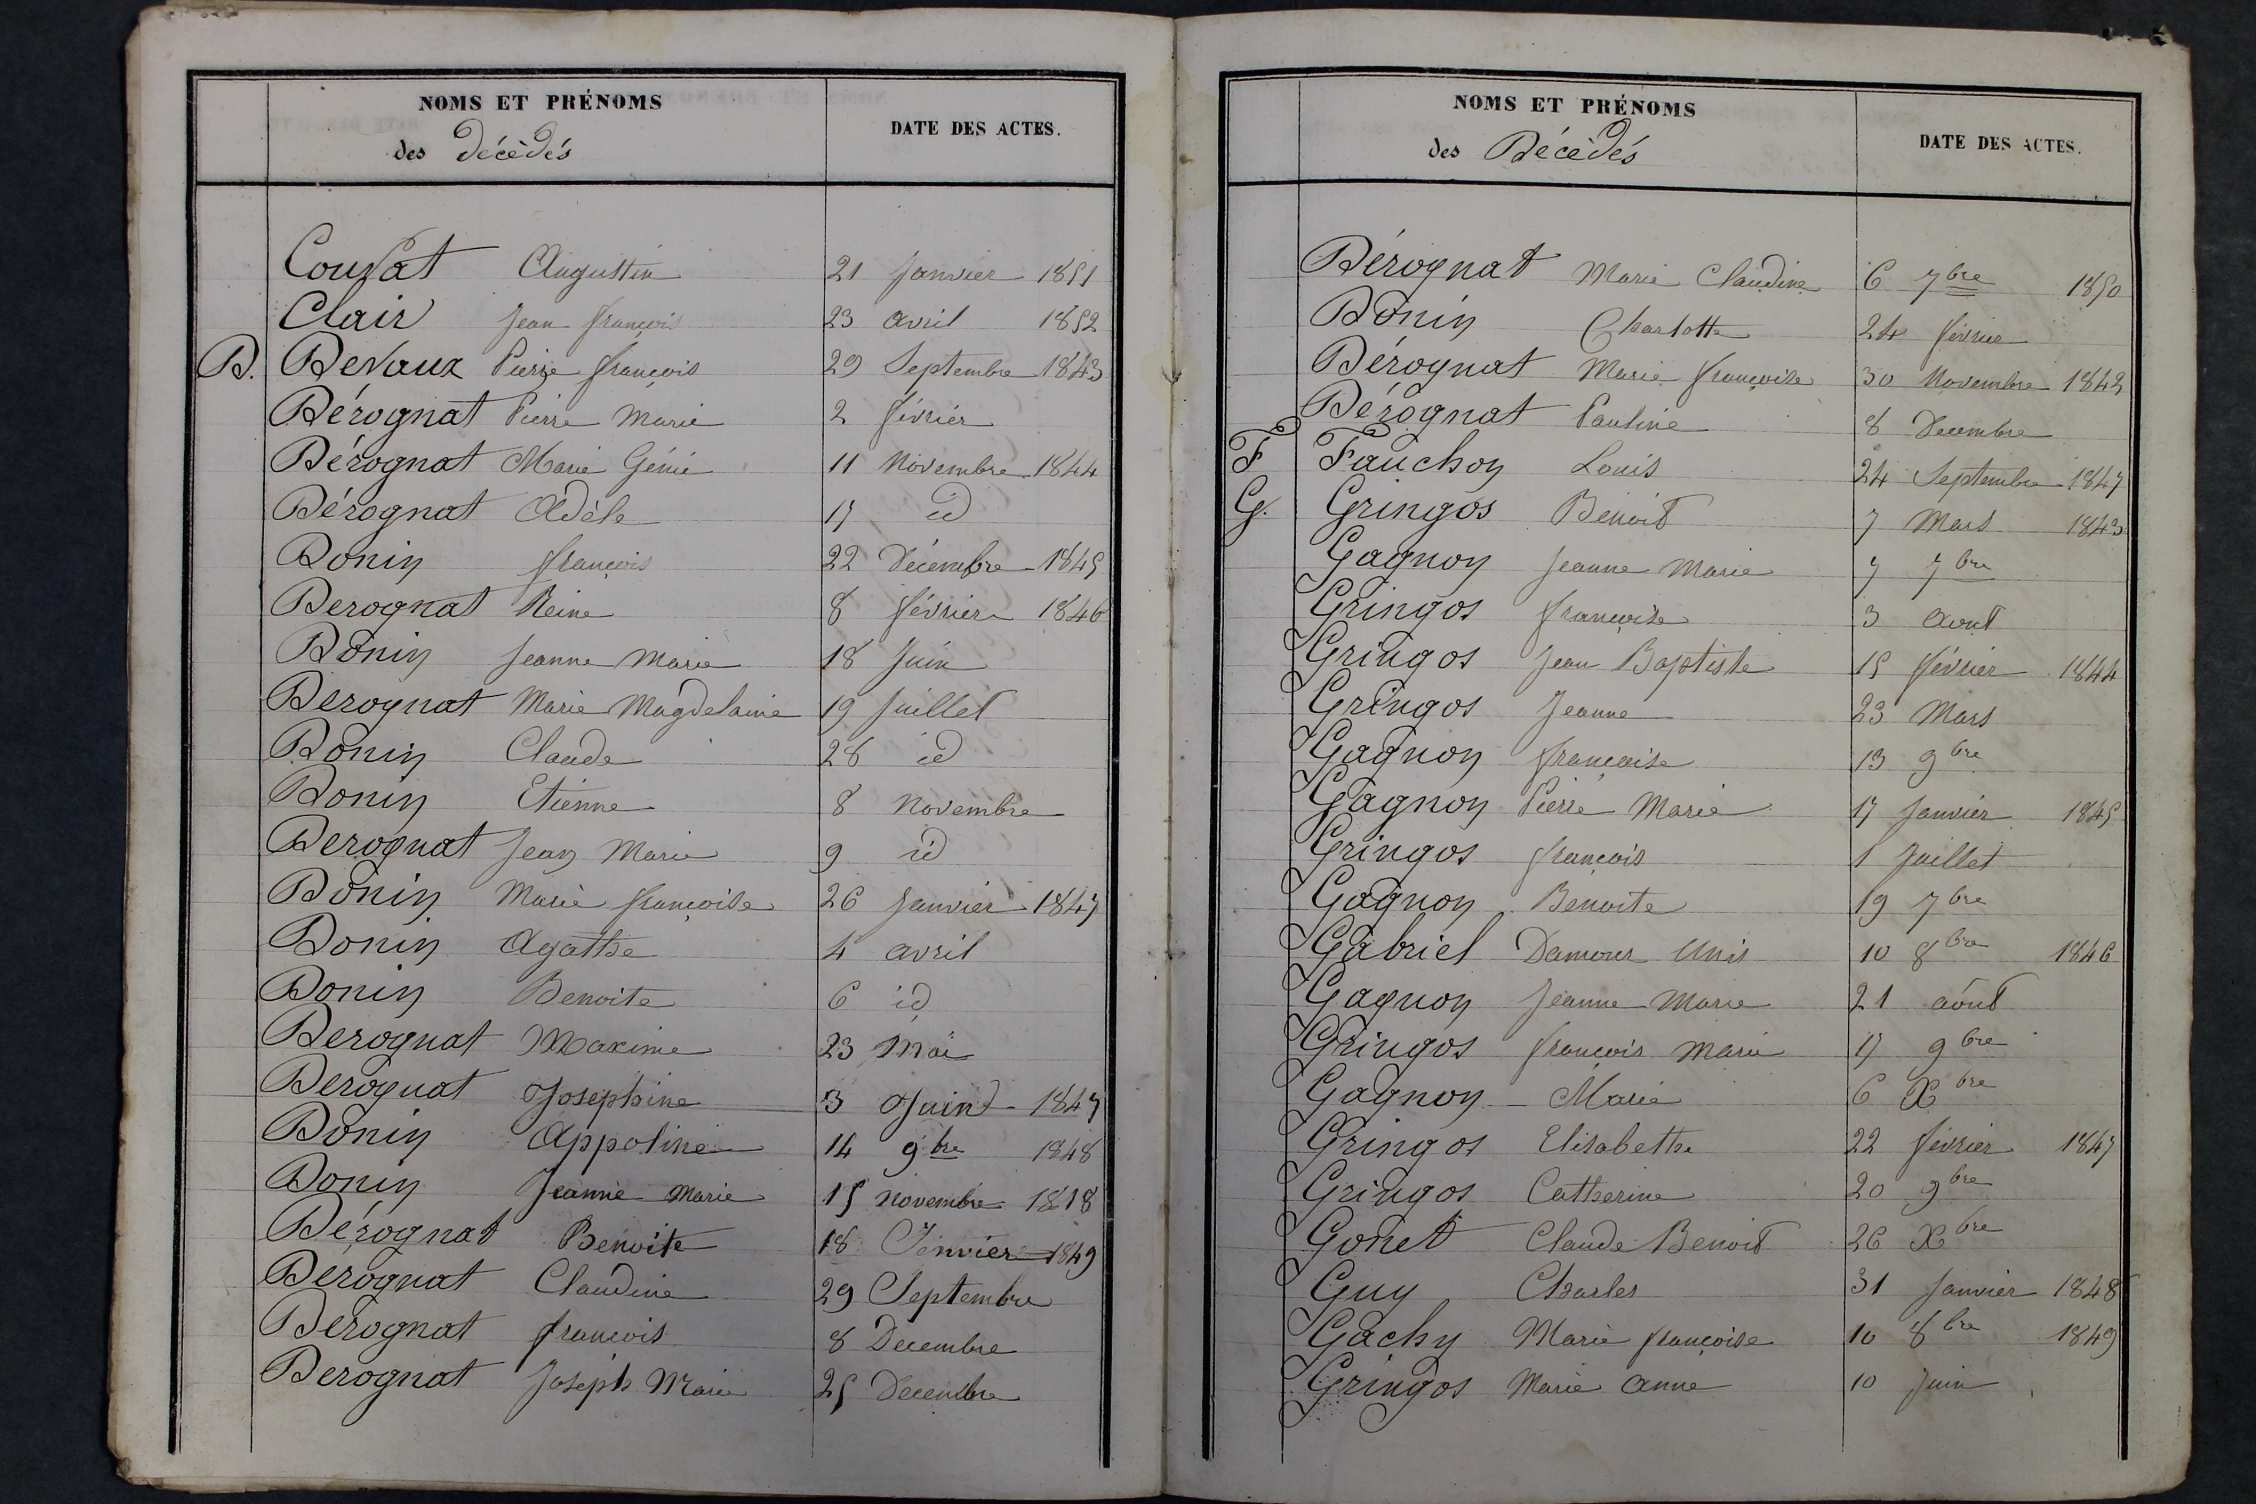 NOMS ET PRÉNOMS
des Décédés
DATE DES ACTES.
Augustin 21 Janvier 1851
Clair Jean françois 23 avril 1852
D. Devaux Pierre françois 29 Septembre 1843
Dérognat Pierre Marie 2 février
Dérognat Marie Génie 11 Novembre 1844
Dérognat Adèle 17 id
Donin françois 22 Décembre 1845
Derognat Reine 8 février 1846
Donin Jeanne Marie 18 Juin
Derognat Marie Magdelaine 19 Juillet
Donin Claude 28 id
Donin Etienne 8 Novembre
Derognat Jean Marie 9 id
Donin Marie françoise 26 Janvier 1847
Donin Agathe 4 avril
Donin Benoite 6 id
Derognat Maxime 23 Mai
Derognat Josephine 3 Juin 1847
Donin Appoline 14 9bre 1848
Donin Jeanne Marie 15 novembre 1848
Dérognat Benoite 18 Janvier 1849
Derognat Claudine 29 Septembre
Derognat françois 8 Decembre
Derognat Joseph Marie 25 Decembre
NOMS ET PRÉNOMS
des Décédés
DATE DES ACTES.
Dérognat Marie Claudine 6 7bre 1850
Donin Charlotte 24 février
Dérognat Marie françoise 30 Novembre 1842
Dérognat Pauline 8 Decembre
F Fauchon Louis 24 Septembre 1847
G. Gringos Benoit 7 Mars 1843
Gagnon Jeanne Marie 7 7bre
Gringos françoise 3 Aout
Gringos Jean Baptiste 15 février 1844
Gringos Jeanne 23 Mars
Gagnon françoise 13 9bre
Gagnon Pierre Marie 17 Janvier 1845
Gringos françois 1 Juillet
Gagnon Benoite 19 7bre
Gabriel Damour Unis 10 8bre 1846
Gagnon Jeanne Marie 21 aout
Gringos françois Marie 17 9bre
Gagnon Marie 6 Xbre
Gringos Elisabethe 22 février 1847
Gringos Catherine 20 9bre
Gonet Claude Benoit 26 Xbre
Guy Charles 31 Janvier 1848
Gachy Marie françoise 10 8bre 1849
Gringos Marie Anne 10 Juin